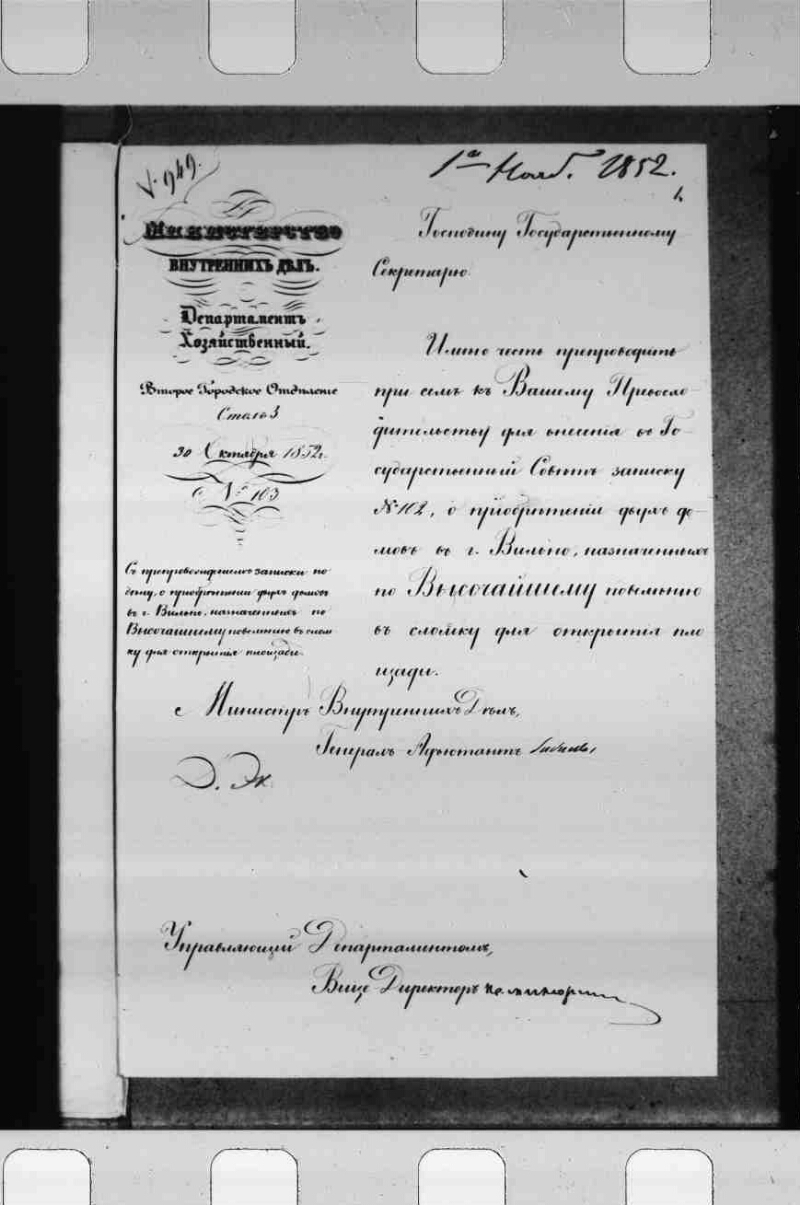 № 949.
1го Нояб. 1852.
Министерство
ВНУТРЕННИХЪ ДѢЛЪ.
Департаментъ
Хозяйственный.
Второе Городское Отдѣленіе
Столъ 3
30 Октября 1852 г.
№ 103
Съ препровожденіемъ записки по
дѣлу, о пріобрѣтеніи двухъ домовъ
въ г. Вильнѣ, назначенныхъ по
Высочайшему повелѣнію въ слом
ку для открытія площади.
Господину Государственному
Секретарю
Имѣю честь препроводить
при семъ къ Вашему Превосхо
дительству для внесенія въ Го
сударственный Совѣтъ записку
№ 102, о пріобрѣтеніи двухъ до
мовъ въ г. Вильно, назначенныхъ
по Высочайшему повелѣнію
въ сломку для открытія пло
щади.
Министръ Внутреннихъ Дѣлъ,
Генералъ Адъютантъ
Д. Эк.
Управляющій Департаментомъ,
Вице-Директоръ